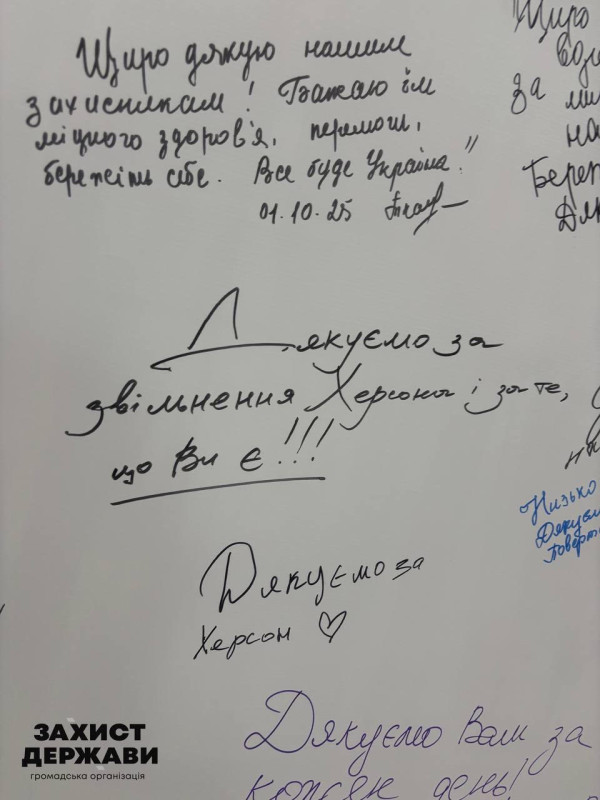 Щиро дякую нашим
захисникам! Бажаю їм
міцного здоров'я, перемоги,
бережіть себе. Все буде Україна!"
01.10.25
"Щиро
за
на
Дякуємо за
звільнення Херсона і за те,
що Ви є!!!
Низько
Дякуємо за
Херсон ♡
Дякуємо Вам за
кожен день!
ЗАХИСТ
ДЕРЖАВИ
громадська організація